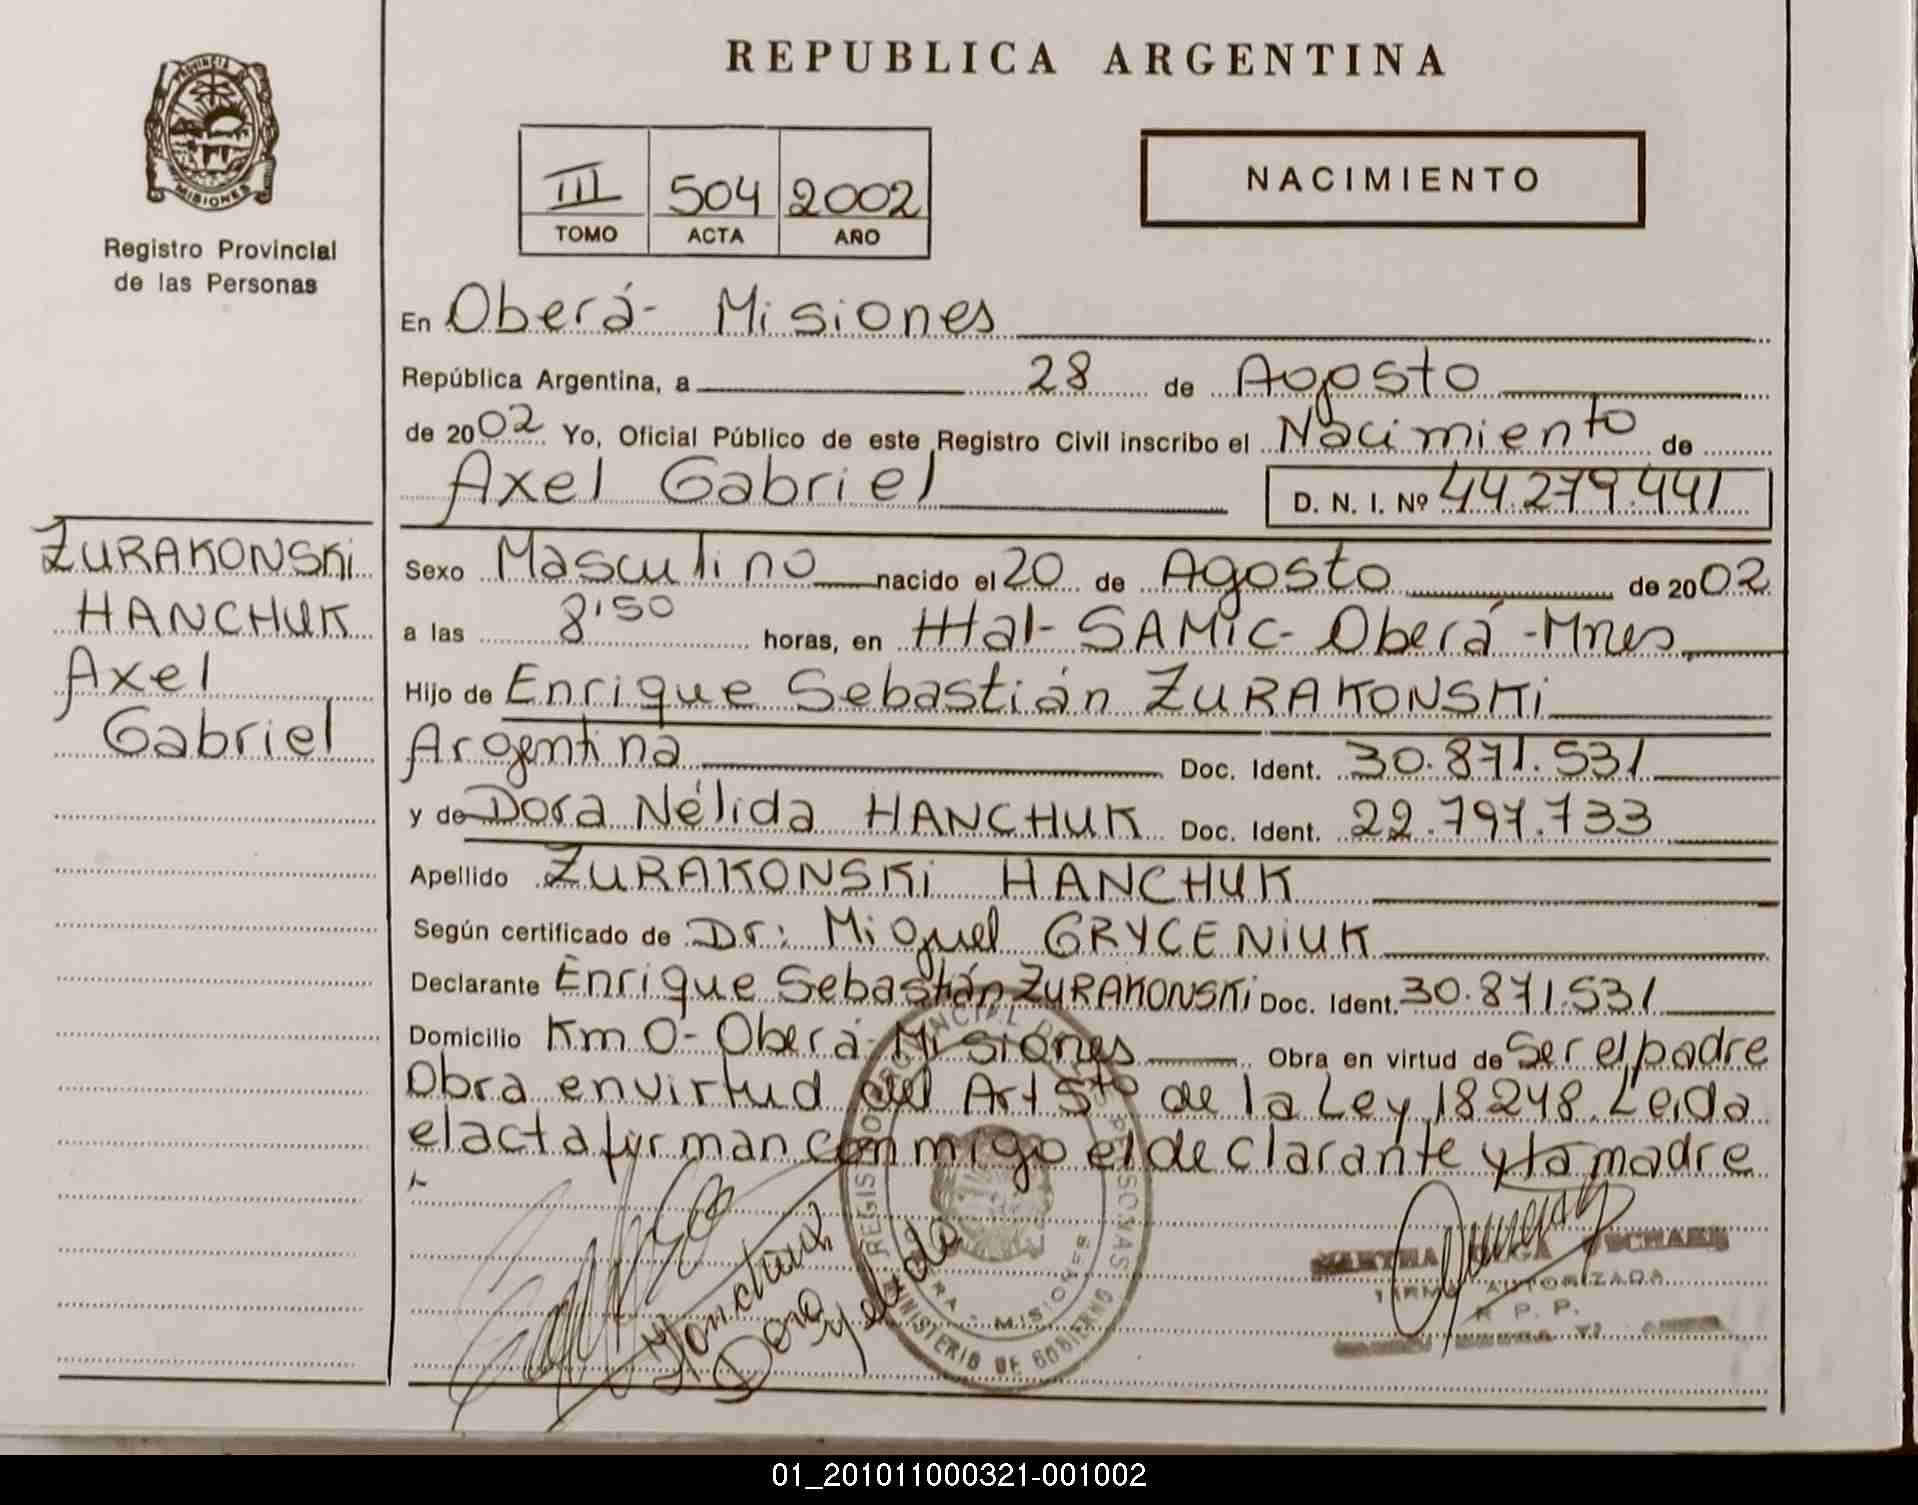 REPUBLICA ARGENTINA
PROVINCIA DE
MISIONES
Registro Provincial
de las Personas
III 504 2002
TOMO ACTA AÑO
NACIMIENTO
En Oberá- Misiones
República Argentina, a 28 de Agosto
de 2002 Yo, Oficial Público de este Registro Civil inscribo el Nacimiento de
Axel Gabriel D. N. I. Nº 44.279.441
ZURAKONSKi
HANCHUK
Axel
Gabriel
Sexo Masculino nacido el 20 de Agosto de 2002
a las 8'50 horas, en Htal- SAMIC- Oberá -Mnes
Hijo de Enrique Sebastián ZURAKONSKi
Argentina Doc. Ident. 30.871.531
y de Dora Nélida HANCHUK Doc. Ident. 22.797.733
Apellido ZURAKONSKi HANCHUK
Según certificado de Dr: Miguel GRYCENIUK
Declarante Enrique Sebastián ZURAKONSKi Doc. Ident. 30.871.531
Domicilio Km 0- Oberá- Misiones Obra en virtud de Ser el padre
Obra en virtud del Art 5to de la Ley 18248. Leida
el acta firman conmigo el declarante y la madre
Hanchuk
Dora Nelida
REGISTRO PROVINCIAL DE LAS PERSONAS
MINISTERIO DE GOBIERNO
MISIONES
MARTHA OLGA
FIRMA AUTORIZADA
R. P. P.
01_201011000321-001002